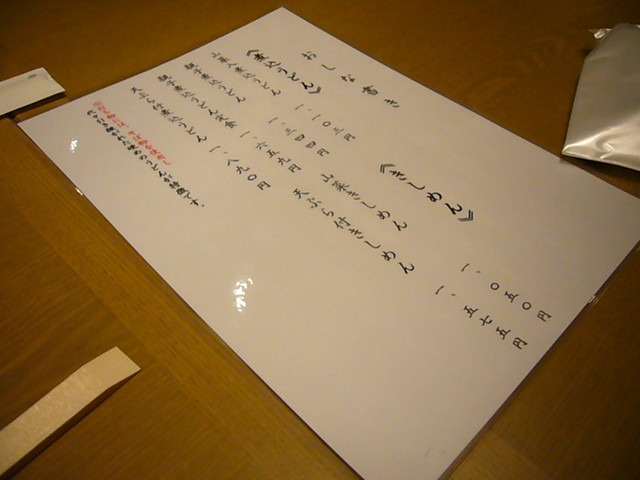 おしな書き
《煮込うどん》
山菜入煮込うどん 一、一〇三円
親子煮込うどん 一、三四四円
親子煮込うどん定食 一、六五九円
天ぷら付煮込うどん 一、八九〇円
《きしめん》
山菜きしめん 一、〇五〇円
天ぷら付きしめん 一、五七五円